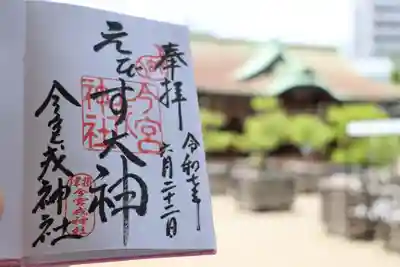 奉拝
令和七年
六月二十二日
えびす大神
今宮
神社
今宮戎神社
今宮戎神社